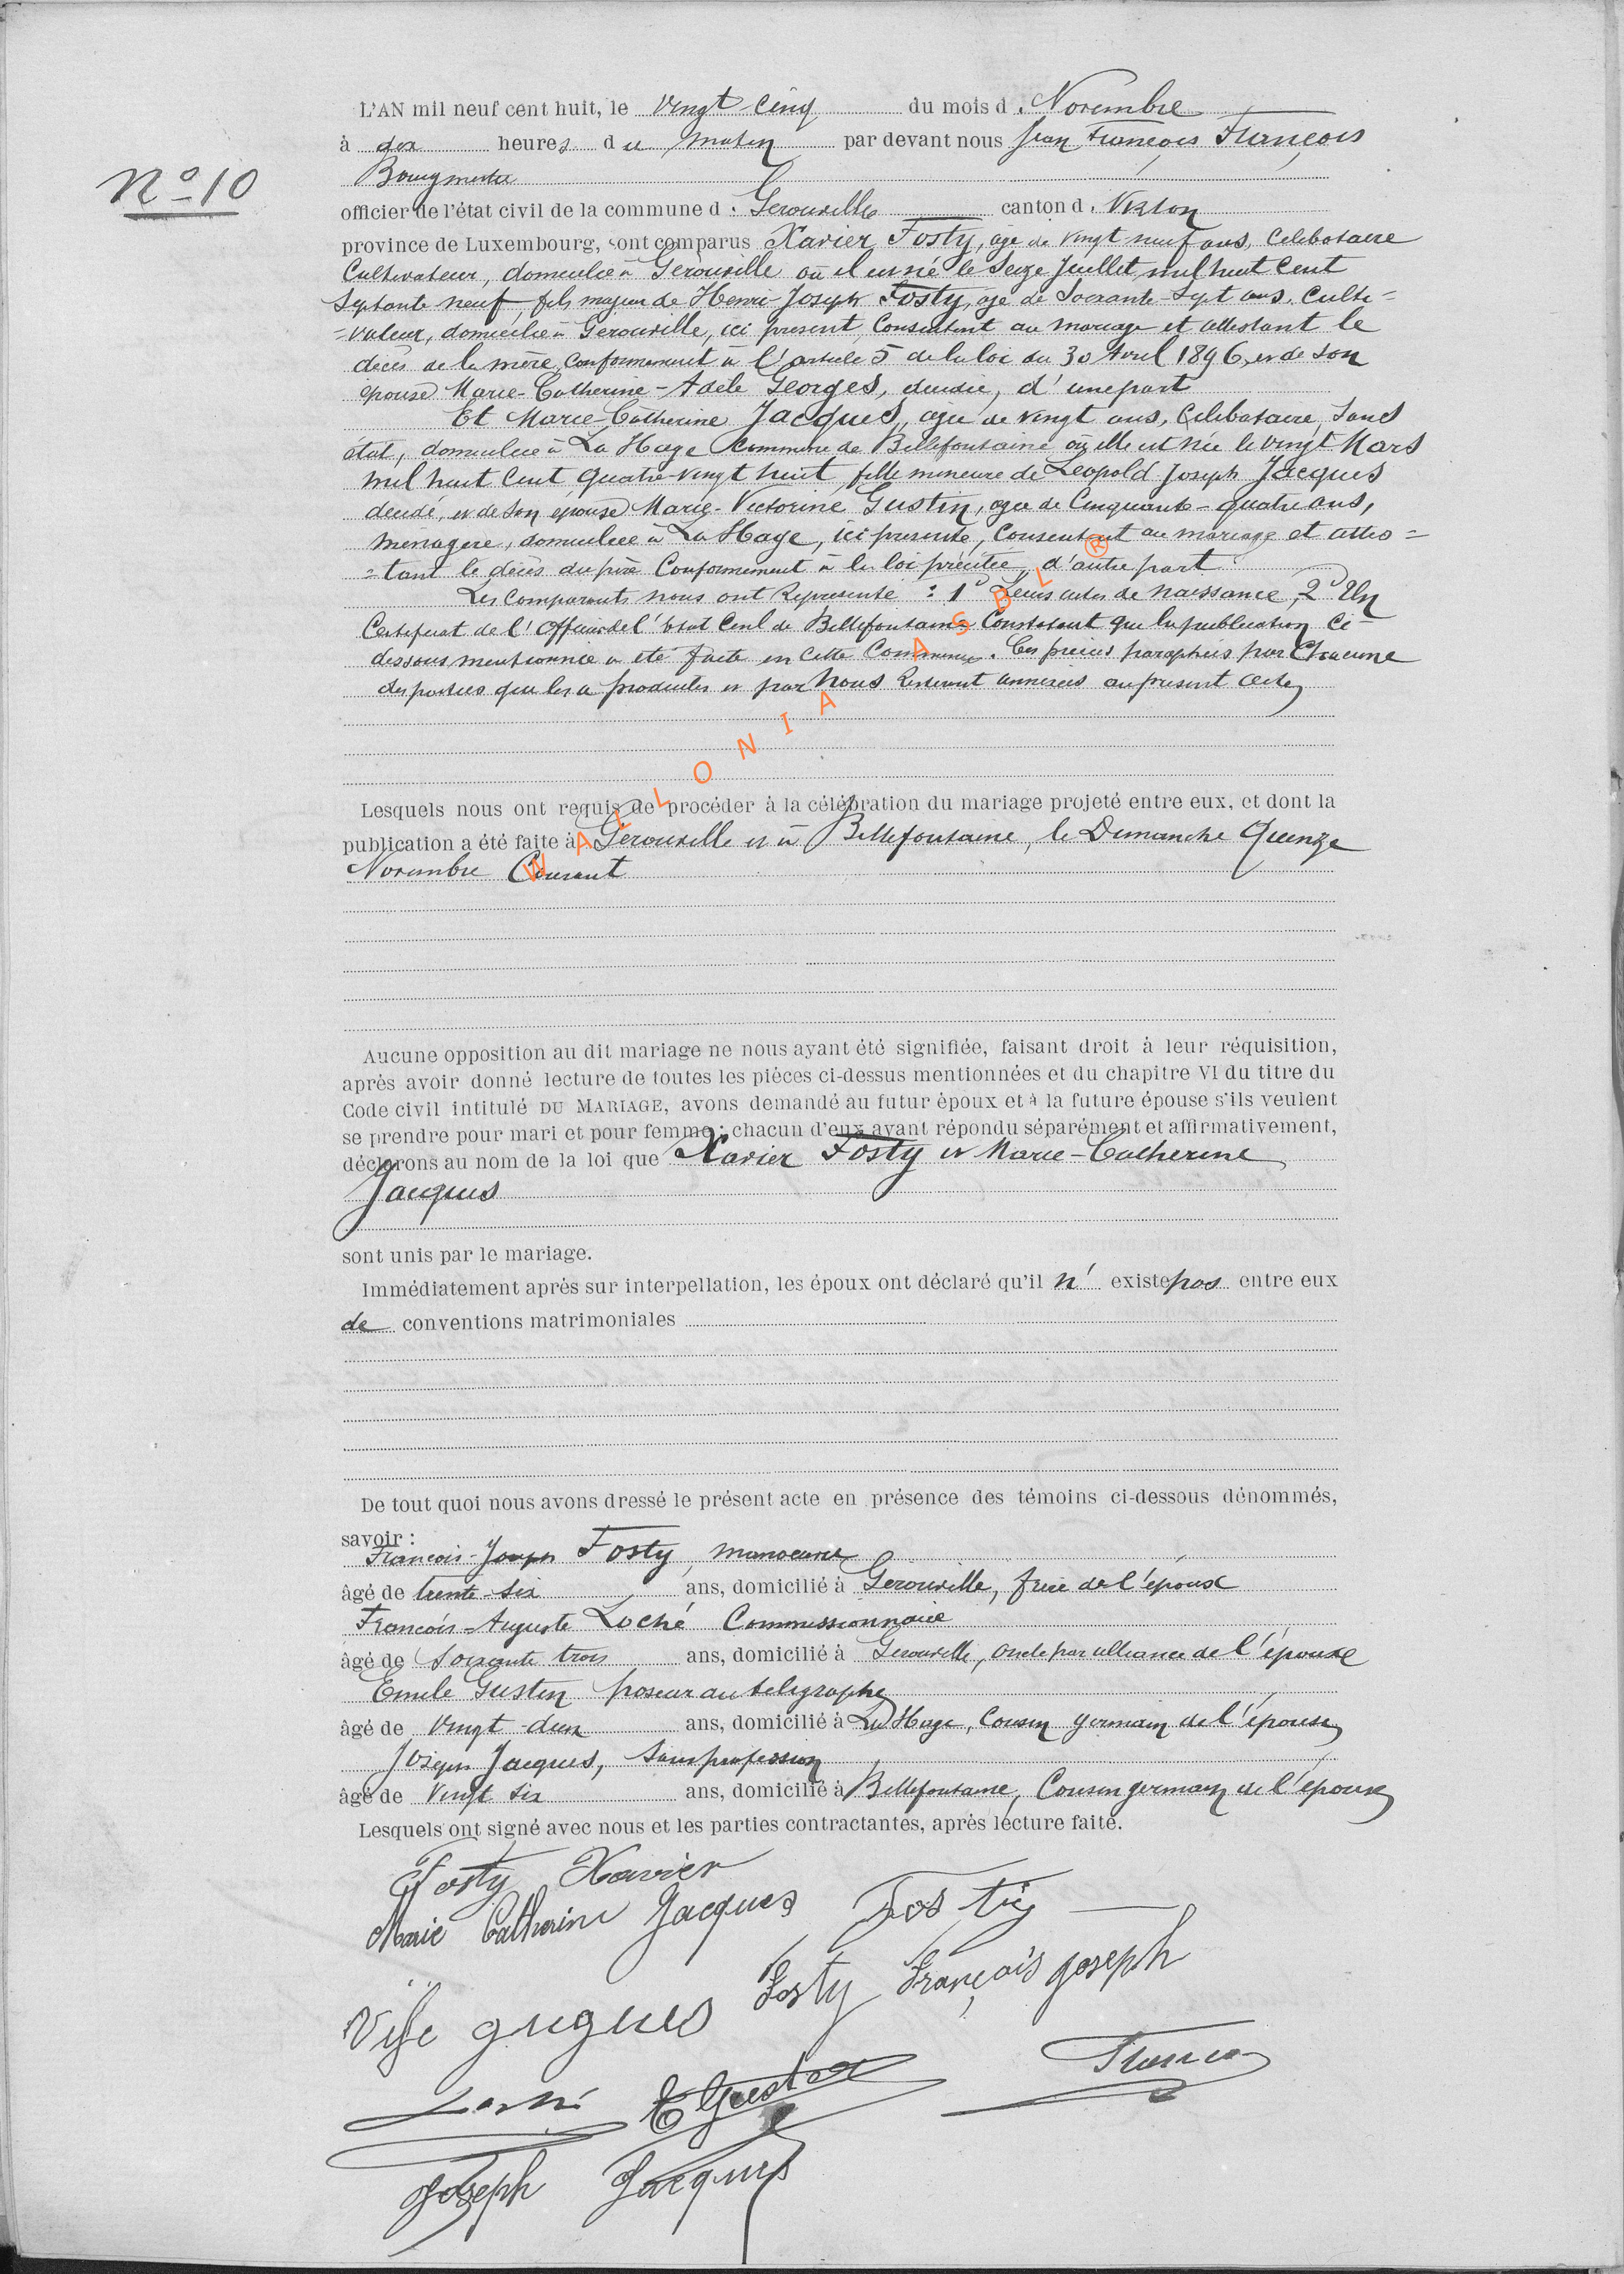 N° 10
L'AN mil neuf cent huit, le vingt-cinq du mois d. Novembre
à dix heures du matin par devant nous Jean François François
Bourgmestre
officier de l'état civil de la commune d. Gérouville canton d. Virton
province de Luxembourg, sont comparus Xavier Fosty, âgé de vingt neuf ans, Célibataire
Cultivateur, domicilié à Gérouville où il est né le Seize Juillet mil huit Cent
Septante neuf, fils majeur de Henri-Joseph Fosty, âgé de Soixante-Sept ans, Culti=
=vateur, domicilié à Gerouville, ici présent, Consentant au mariage et attestant le
décès de la mère, Conformément à l'article 5 de la loi du 30 Avril 1896, et de son
épouse Marie-Catherine-Adèle Georges, décédée, d'une part
Et Marie-Catherine Jacques, âgée de vingt ans, Célibataire, Sans
état, domiciliée à La Hage Commune de Bellefontaine où elle est née le vingt Mars
mil huit Cent quatre-vingt huit, fille mineure de Léopold Joseph Jacques
décédé, et de son épouse Marie-Victorine Gustin, âgée de Cinquante-quatre ans,
ménagère, domiciliée à La Hage, ici présente, Consentant au mariage et attes=
=tant le décès du père Conformément à la loi précitée, d'autre part
Les Comparants nous ont Représenté : 1° Leurs actes de naissance, 2° Un
Certificat de l'Officier de l'Etat Civil de Bellefontaine Constatant que la publication Ci-
dessous mentionnée a été faite en Cette Commune. Ces pièces paraphées par Chacune
des parties qui les a produites et par Nous Resteront annexées au présent acte
Lesquels nous ont requis de procéder à la célébration du mariage projeté entre eux, et dont la
publication a été faite à Gérouville et à Bellefontaine, le Dimanche Quinze
Novembre Courant
WALLONIA ASBL ®
Aucune opposition au dit mariage ne nous ayant été signifiée, faisant droit à leur réquisition,
après avoir donné lecture de toutes les pièces ci-dessus mentionnées et du chapitre VI du titre du
Code civil intitulé DU MARIAGE, avons demandé au futur époux et à la future épouse s'ils veulent
se prendre pour mari et pour femme ; chacun d'eux ayant répondu séparément et affirmativement,
déclarons au nom de la loi que Xavier Fosty et Marie-Catherine
Jacques
sont unis par le mariage.
Immédiatement après sur interpellation, les époux ont déclaré qu'il n' existe pas entre eux
de conventions matrimoniales
De tout quoi nous avons dressé le présent acte en présence des témoins ci-dessous dénommés,
savoir :
François-Joseph Fosty, manoeuvre
âgé de trente-six ans, domicilié à Gérouville, frère de l'époux
François-Auguste Loché Commissionnaire
âgé de Soixante trois ans, domicilié à Gerouville, oncle par alliance de l'épouse
Emile Gustin poseur au télégraphe
âgé de Vingt-deux ans, domicilié à La Hage, Cousin germain de l'épouse
Joseph Jacques, Sans profession
âgé de Vingt six ans, domicilié à Bellefontaine, Cousin germain de l'épouse
Lesquels ont signé avec nous et les parties contractantes, après lecture faite.
Fosty Xavier
Marie Catherine Jacques Fosty
Fosty François Joseph
Loché E Gustin François
Joseph Jacques